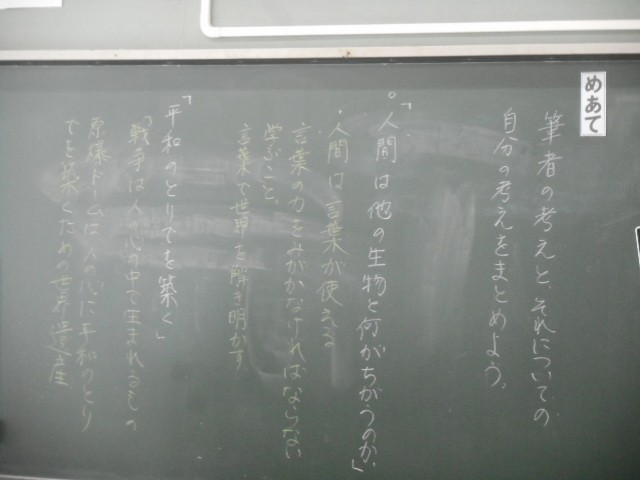 めあて
筆者の考えと、それについての
自分の考えをまとめよう。
。「人間は他の生物と何がちがうのか」
・人間は言葉が使える
言葉の力をみがかなければならない
学ぶこと
言葉で世界を解き明かす
「平和のとりでを築く」
「戦争は人の心の中で生まれるもの
原爆ドームは人の心に平和のとり
でを築くための世界遺産